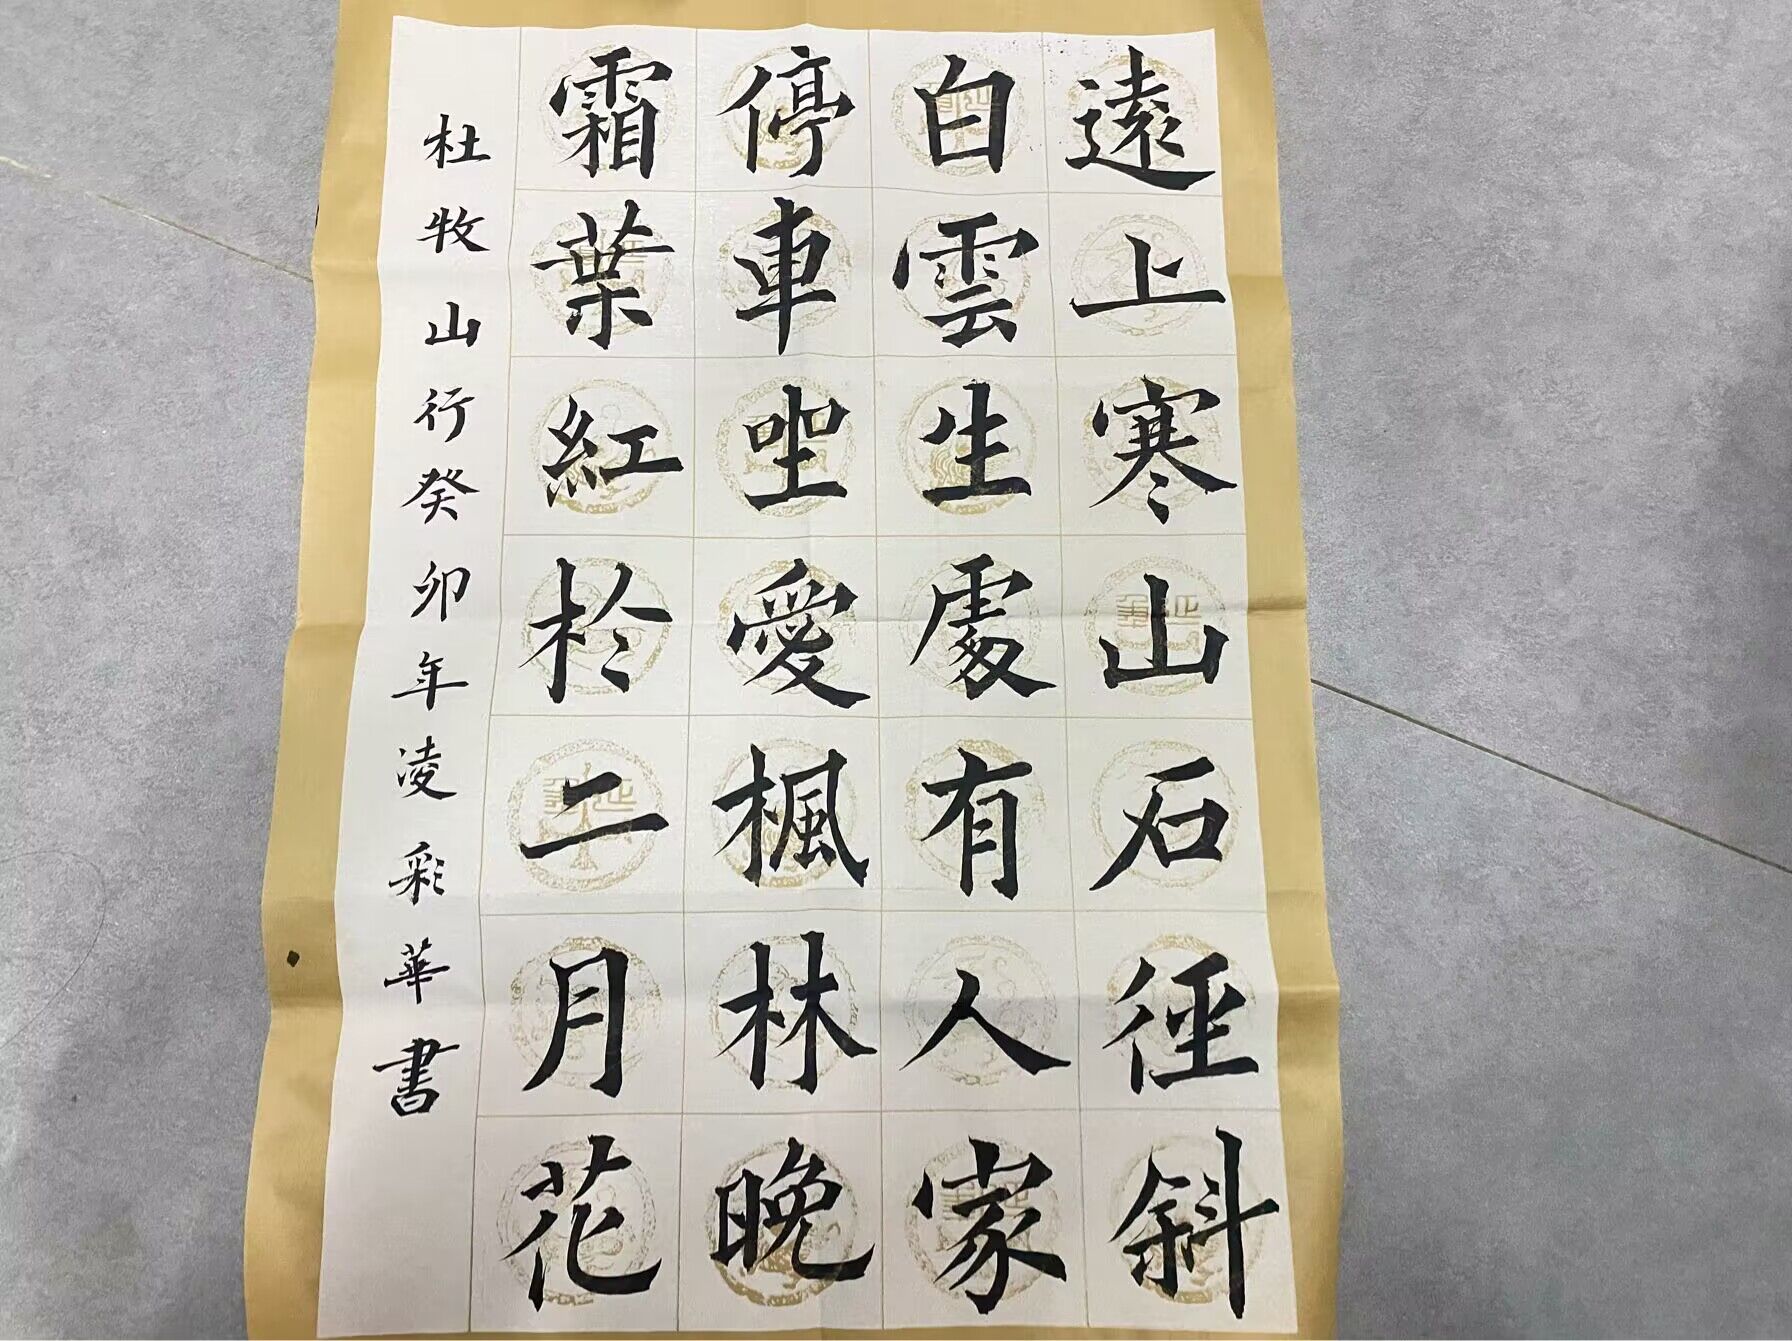 遠上寒山石徑斜
白雲生處有人家
停車坐愛楓林晚
霜葉紅於二月花
杜牧山行癸卯年凌彩華書